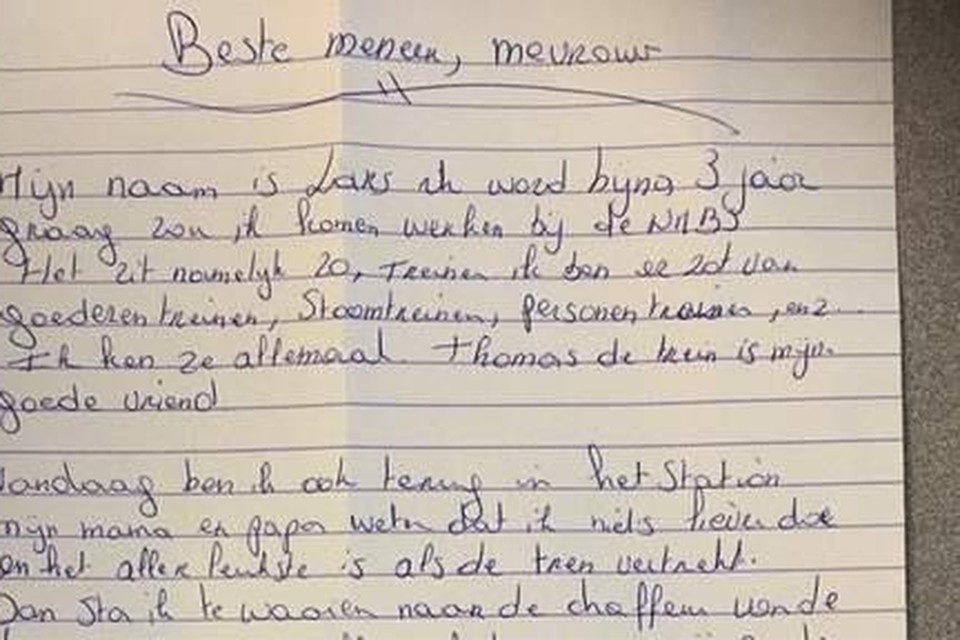 Beste meneer, mevrouw
Mijn naam is Lars ik word bijna 3 jaar
graag zou ik komen werken bij de NMBS
Het zit namelijk zo, Treinen ik ben ze zot van
goederentreinen, Stoomtreinen, personentreinen, enz...
Ik ken ze allemaal. Thomas de trein is mijn
goede vriend
Vandaag ben ik ook terug in het Station
mijn mama en papa wetn dat ik niets liever doe
en het aller leukste is als de tren vertrekt.
Dan Sta ik te waaien naar de chaffeur van de